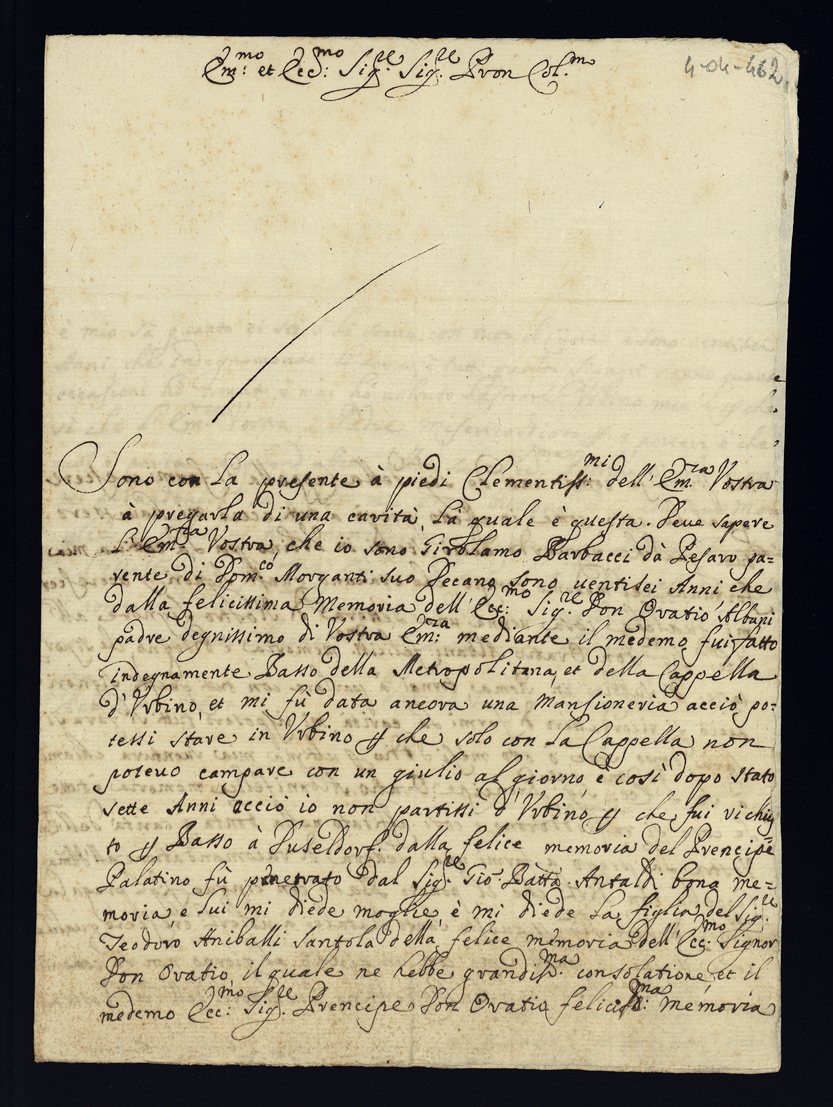 Em:mo et Ecc:mo Sig:re Sig:re Pron Col:mo
4-04-462
Sono con La presente à piedi Clementiss:mi dell'Em:za Vostra
à pregarla di una carità, La quale è questa. Deve sapere
L'Em:za Vostra, che io sono Girolamo Barbacci dà Pesaro pa=
rente di Dom:co Morganti suo Decano, sono uentisei Anni che
dalla felicissima Memoria dell'Ecc:mo Sig:re Don Oratio Albani
padre degnissimo di Vostra Em:za mediante il medemo fui fatto
indegnamente Basso della Metropolitana, et della Cappella
d'Urbino, et mi fù data ancora una Mansioneria acciò po=
tessi stare in Urbino p che solo con La Cappella non
potevo campare con un giulio al giorno, è così dopo stato
sette Anni acciò io non partissi d'Urbino p che fui richies
to p Basso à Duseldorf. dalla felice memoria del Prencipe
Palatino fù penetrato dal Sig:re Gio: Batta Antaldi bona me=
moria, e Lui mi diede moglie, è mi diede La figlia del Sig:re
Teodoro Aniballi Santola della felice memoria dell'Ecc:mo Signor
Don Oratio, il quale ne hebbe grandiss:ma consolatione et il
medemo Ecc:mo Sig:re Prencipe Don Oratio feliciss:ma memoria